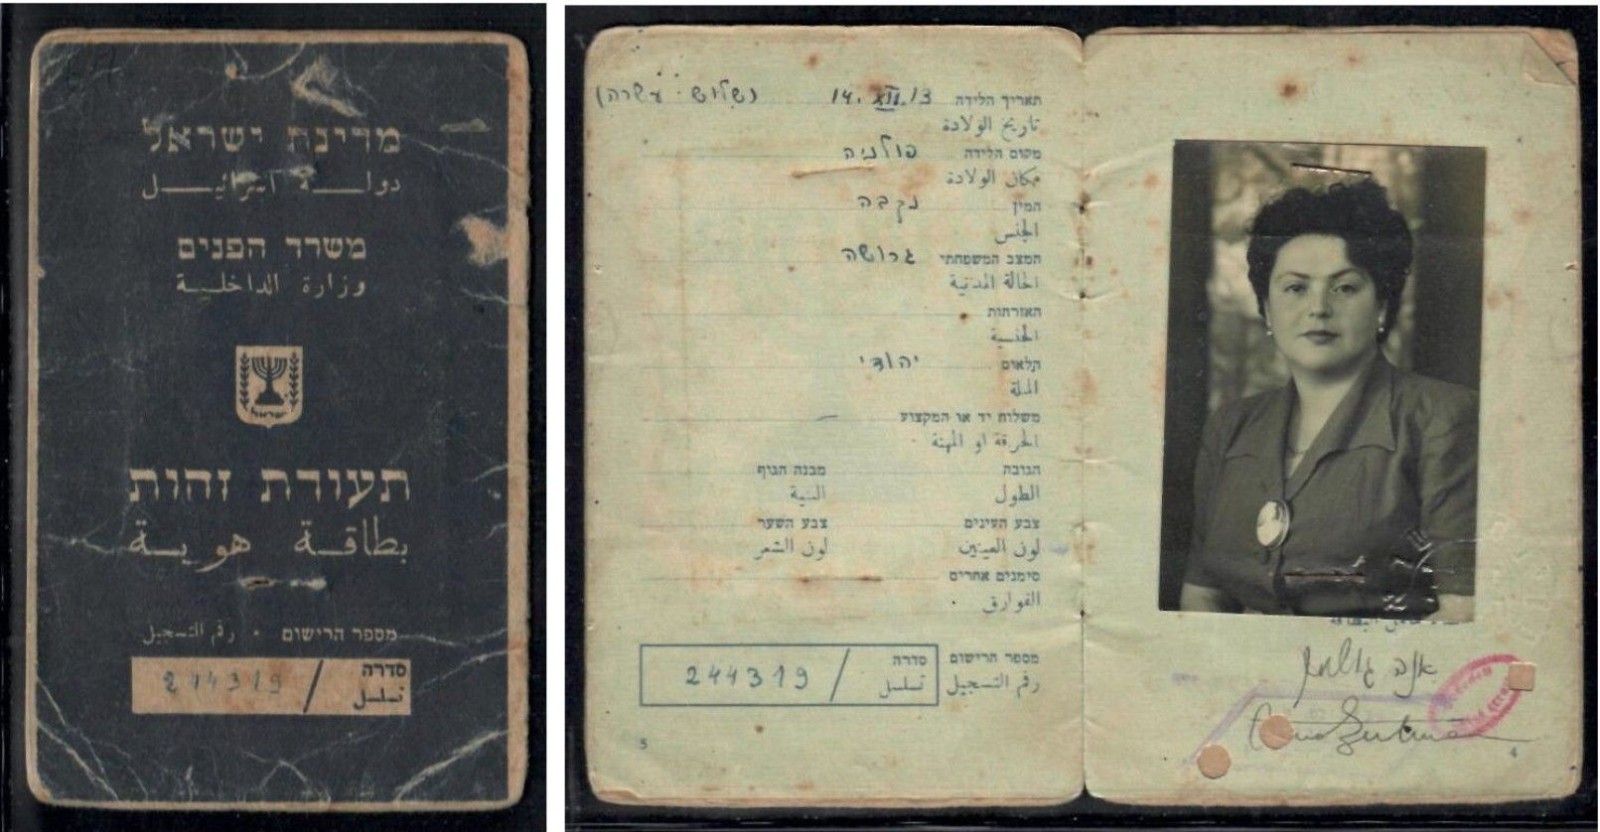 מדינת ישראל
دولـــة اسرائيـــل
משרד הפנים
وزارة الداخليـــة
ישראל
תעודת זהות
بطاقـــة هويـــة
מספר הרישום - رقم التسجيل
סדרה / 244319
تسلسل
תאריך הלידה 14. XII. 13 (שלוש עשרה)
تاريخ الولادة
מקום הלידה פולניה
مكان الولادة
המין נקבה
الجنس
המצב המשפחתי גרושה
الحالة المدنية
האזרחות
الجنسية
הלאום יהודי
الملة
משלוח יד או המקצוע
الحرفة او المهنة
הגובה מבנה הגוף
الطول البنية
צבע העינים צבע השער
لون العينين لون الشعر
סימנים אחרים
الفوارق
מספר הרישום סדרה / 244319
رقم التسجيل تسلسل
5
אנה
4